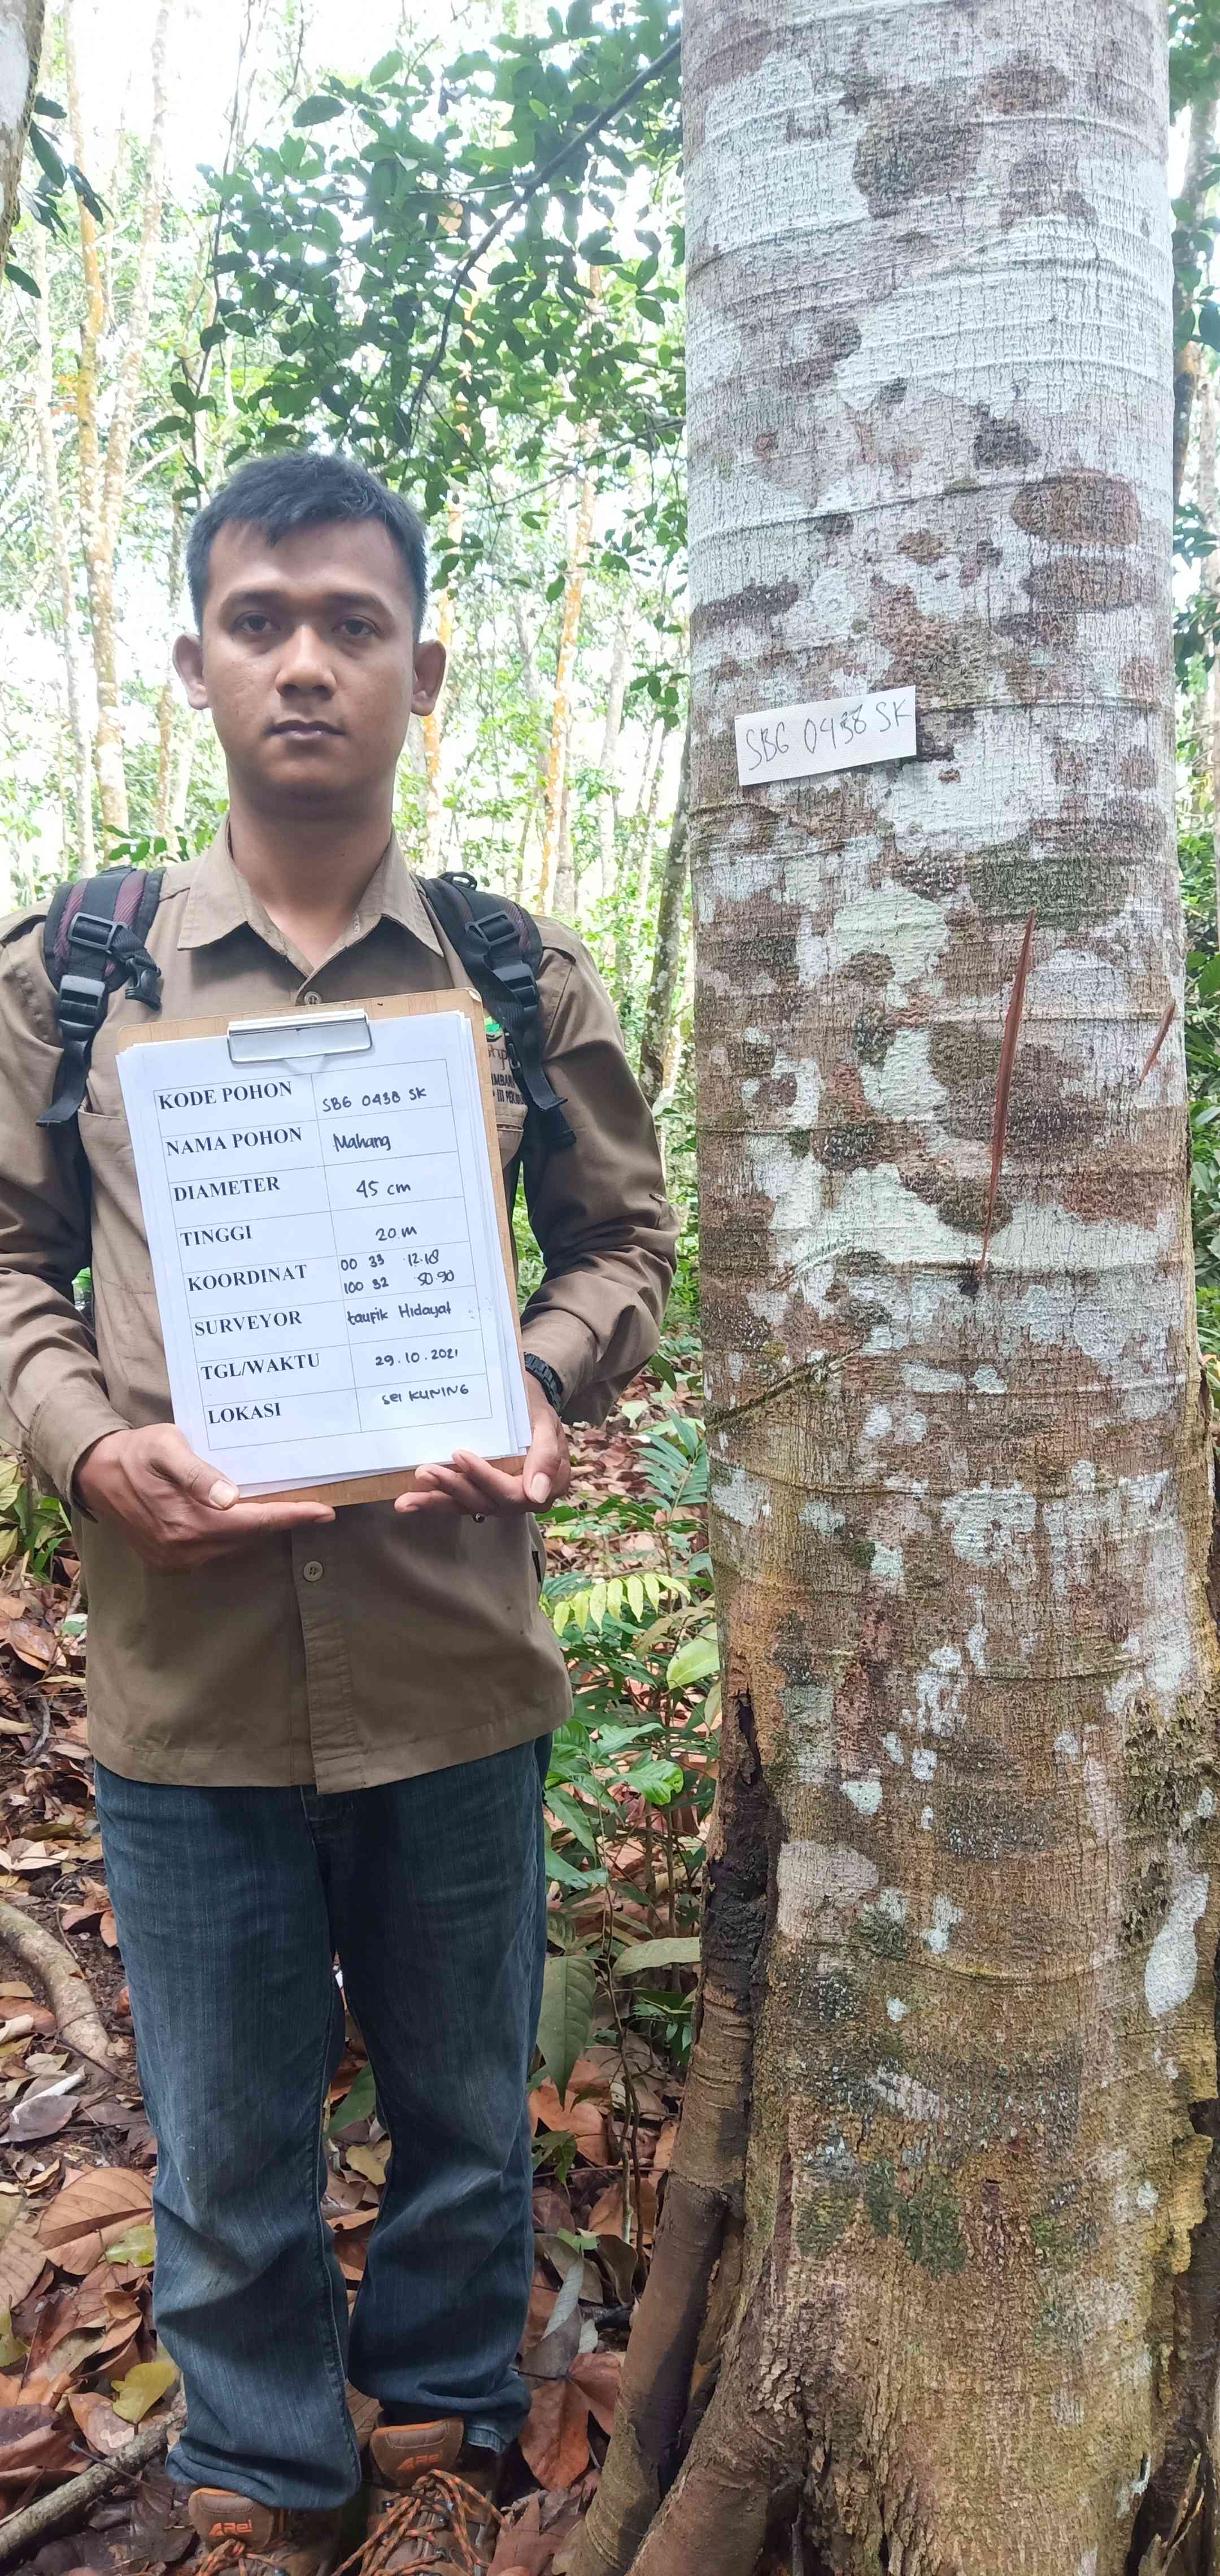 SBG 0438 SK
KODE POHON SBG 0438 SK
NAMA POHON Mahang
DIAMETER 45 cm
TINGGI 20 m
KOORDINAT 00 33 12.18
100 32 50 90
SURVEYOR taufik Hidayat
TGL/WAKTU 29.10.2021
LOKASI sei KUNING
ARei
ARei